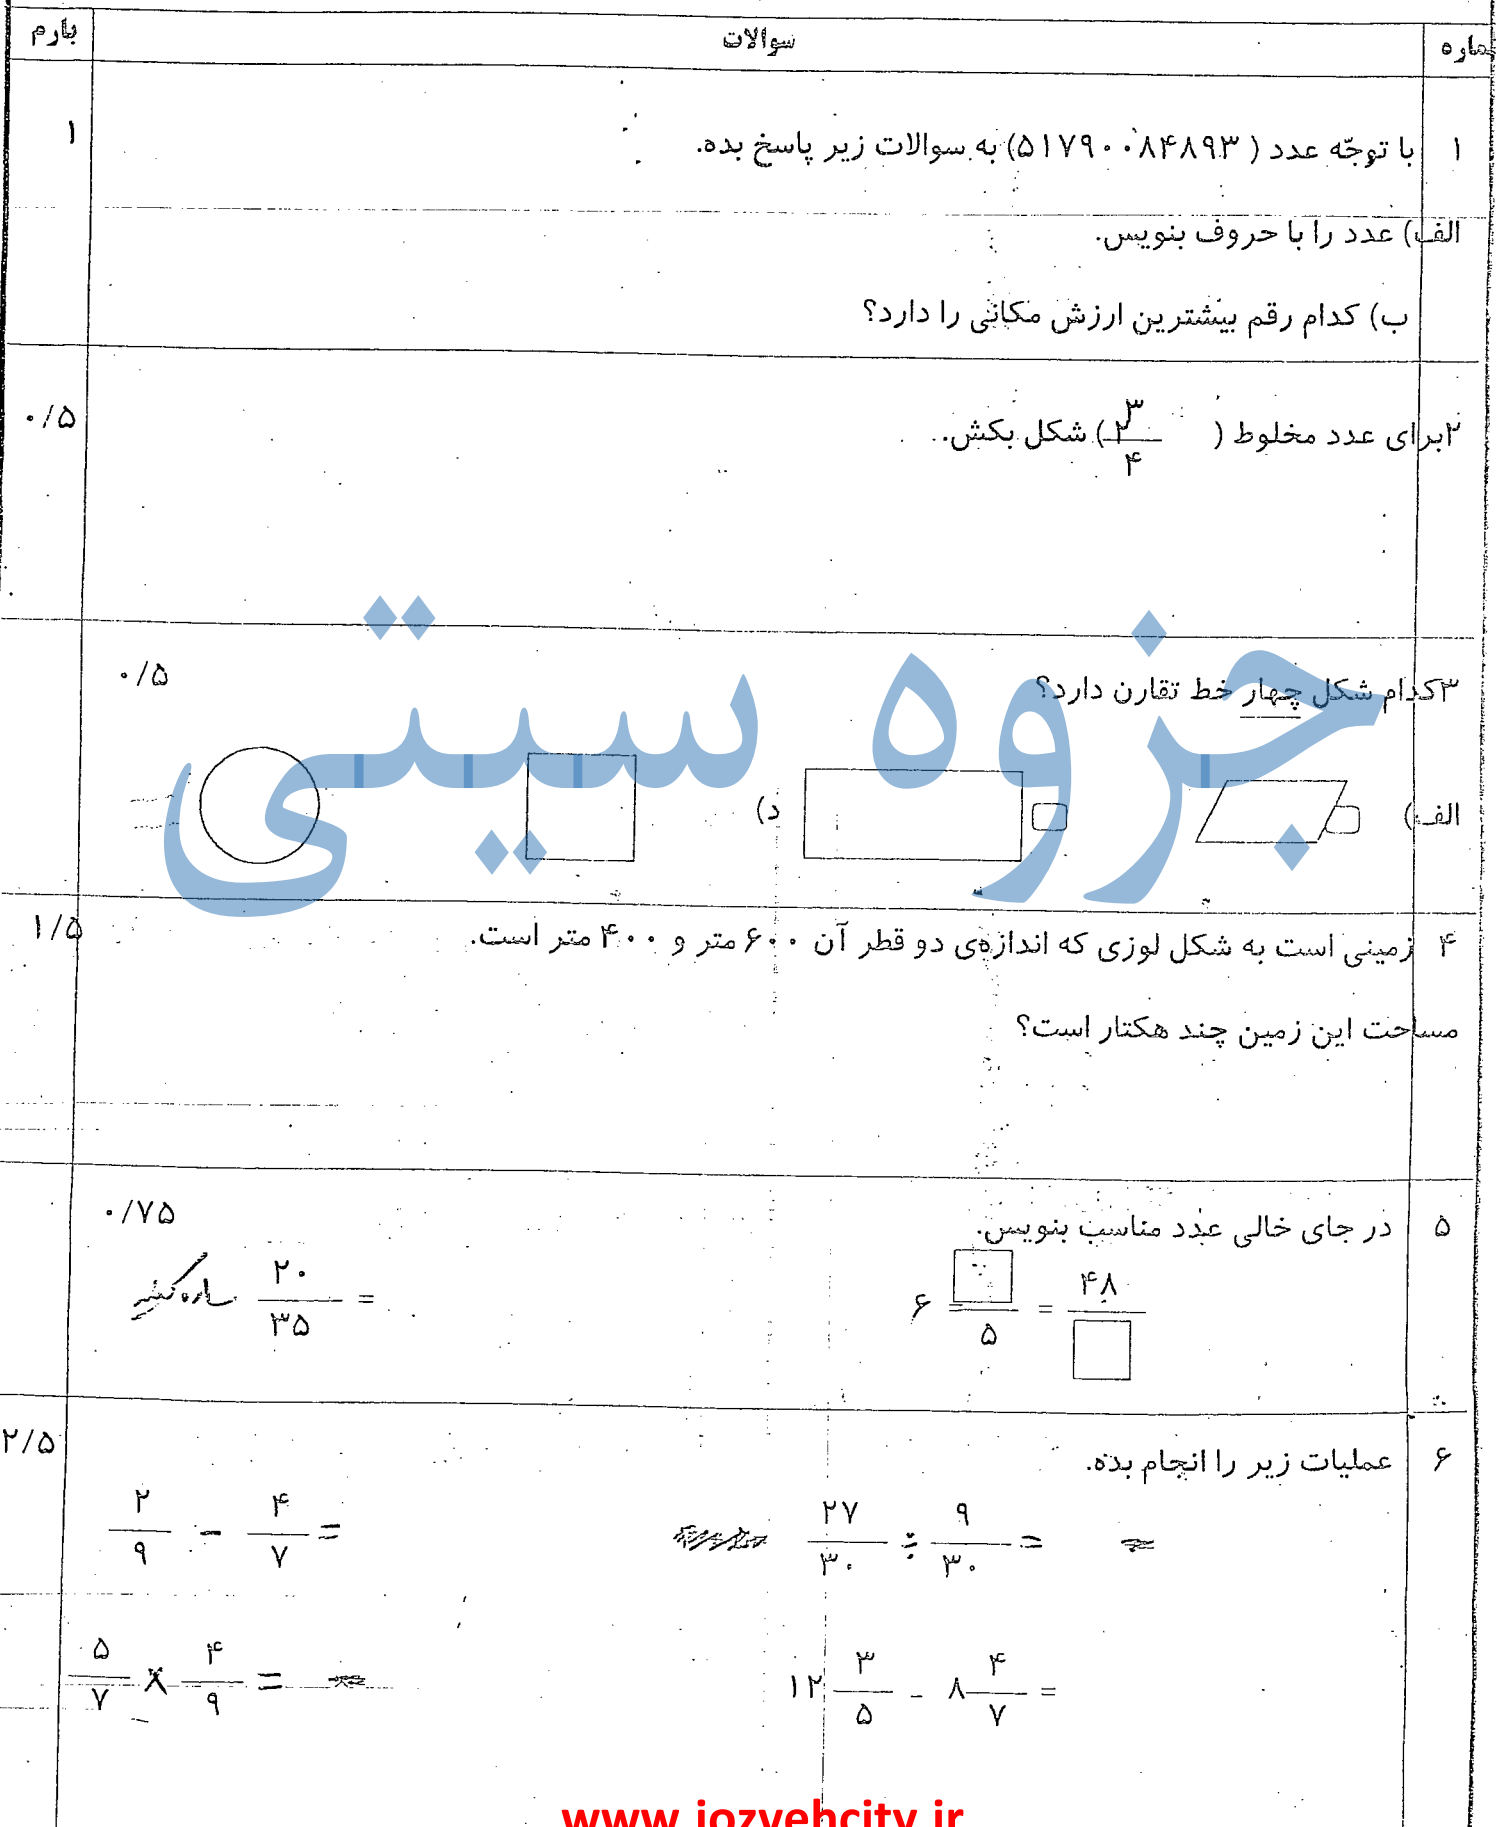 ماره سوالات بارم
۱ با توجّه عدد ( ۵۱۷۹۰۰۸۴۸۹۳) به سوالات زیر پاسخ بده. ۱
الف) عدد را با حروف بنویس.
ب) کدام رقم بیشترین ارزش مکانی را دارد؟
۲برای عدد مخلوط ( ۲ ۳/۴) شکل بکش. ۰/۵
۳کدام شکل چهار خط تقارن دارد؟ ۰/۵
جزوه سیتی
الف) د)
۴ زمینی است به شکل لوزی که اندازه‌ی دو قطر آن ۶۰۰ متر و ۴۰۰ متر است. ۱/۵
مساحت این زمین چند هکتار است؟
۵ در جای خالی عدد مناسب بنویس. ۰/۷۵
۶ □/۵ = ۴۸/□
ساده کنید ۲۰/۳۵ =
۶ عملیات زیر را انجام بده. ۲/۵
۲۷/۳۰ ÷ ۹/۳۰ =
۲/۹ - ۴/۷ =
۱۲ ۳/۵ - ۸ ۴/۷ =
۵/۷ × ۴/۹ =
www.jozvehcity.ir